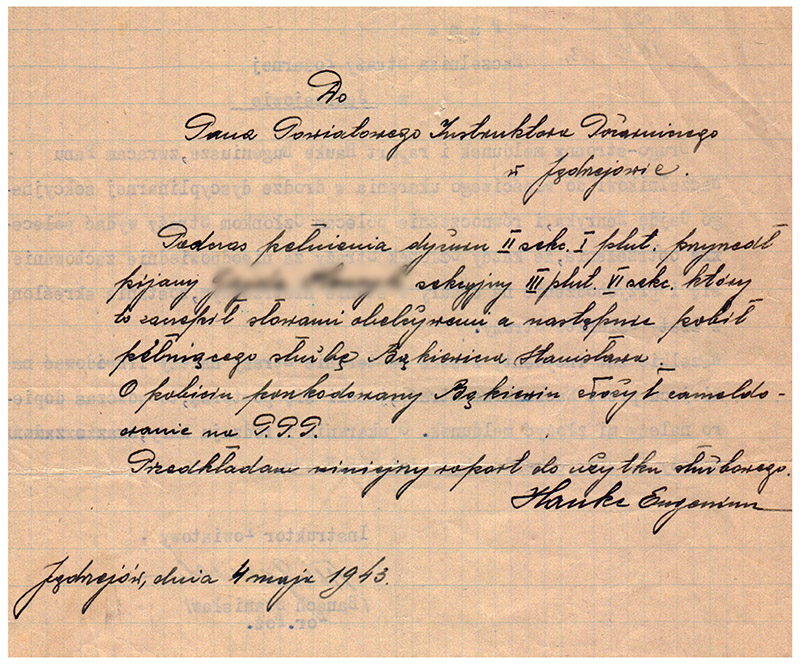 Do
Pana Powiatowego Instruktora Pożarniczego
w Jędrzejowie.
Podczas pełnienia dyżuru II sekc. I plut. przyszedł
pijany sekcyjny III plut. VI sekc. który
to zaczepił słowami obelżywemi a następnie pobił
pełniącego służbę Bąkiewicza Stanisława
O pobiciu poszkodowany Bąkiewicz złożył zameldo-
wanie na P.P.P.
Przedkładam niniejszy raport do użytku służbowego.
Hauke Eugeniusz
Jędrzejów, dnia 4 maja 1943.